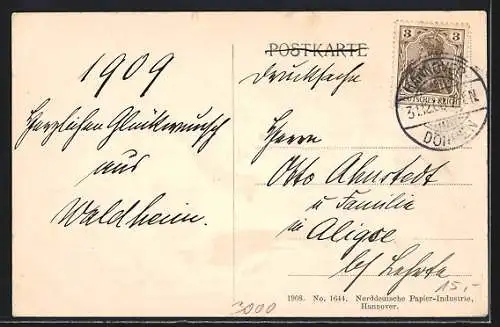 1909
Herzlichen Glückwunsch
aus
Waldheim.
POSTKARTE
Drucksache
3 3
HANNOVER
DEUTSCHES REICH
31.12.
DÖHREN
Herrn
Otto Ahnstedt
u Familie
in Aligse
bei Lehrte
15,-
3000
1908. No. 1644. Norddeutsche Papier-Industrie,
Hannover.